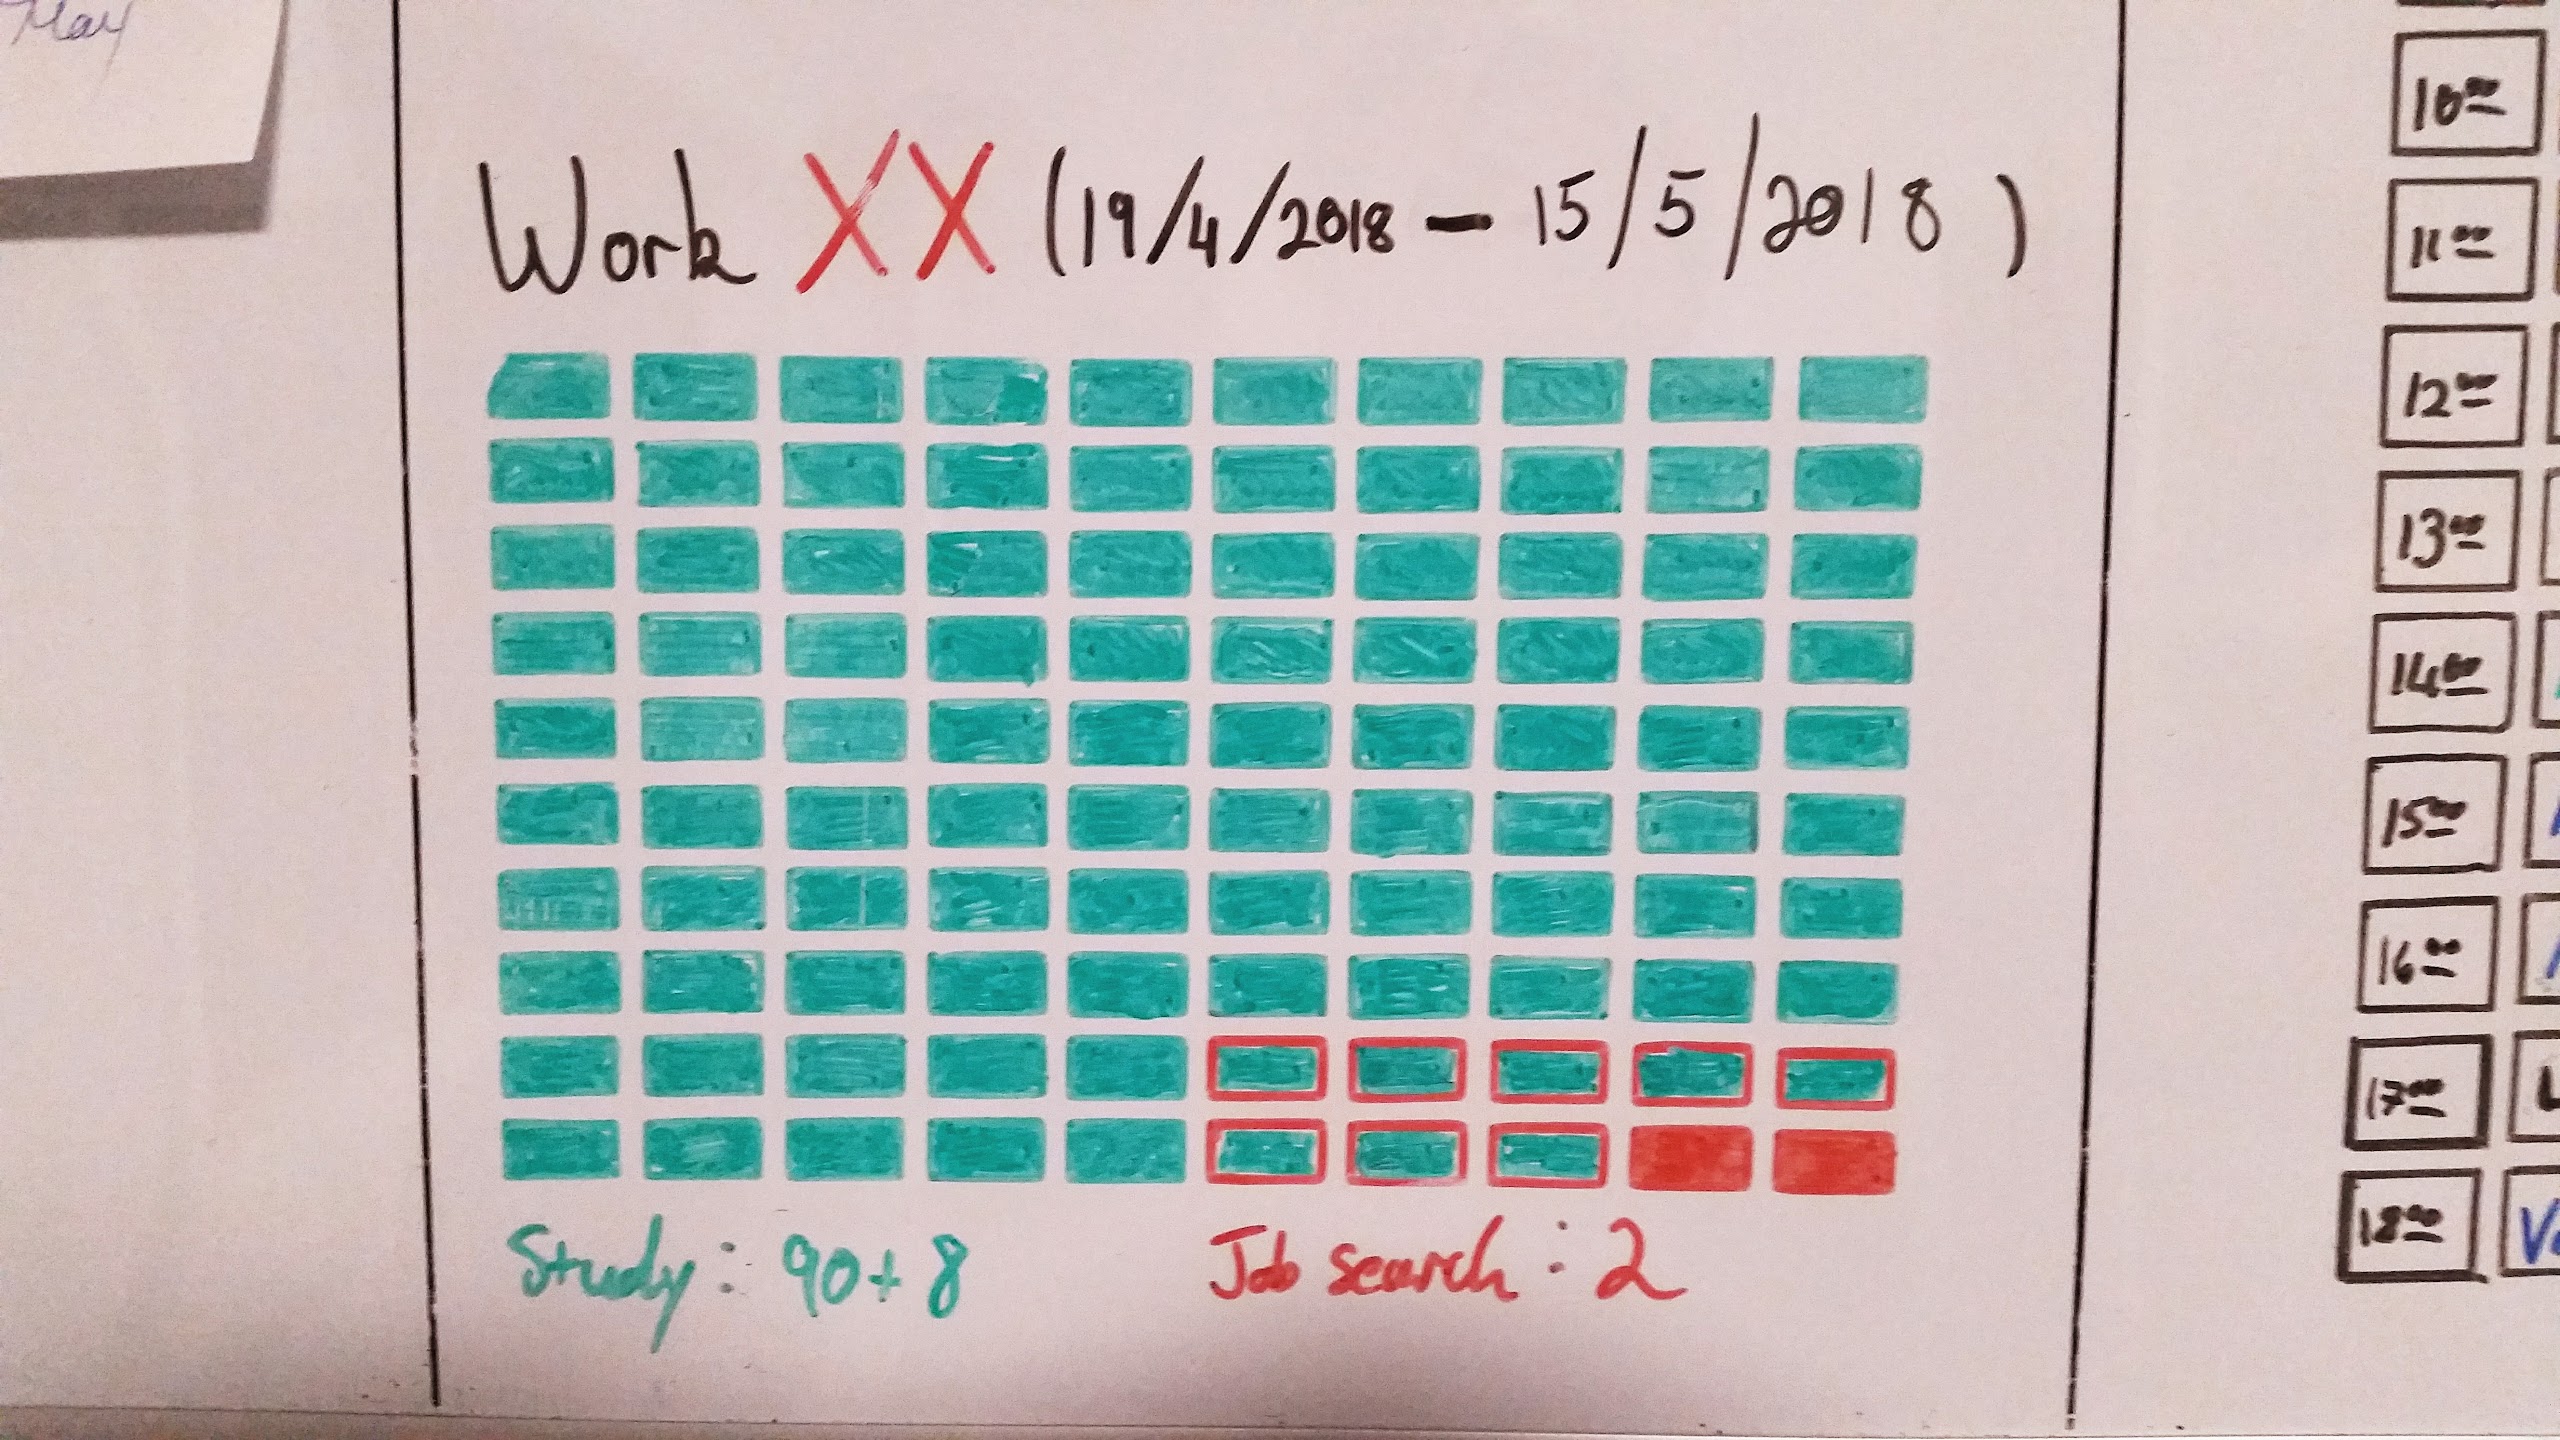 May
Work XX (19/4/2018 - 15/5/2018)
Study: 90+8
Job search: 2
10⁰⁰
11⁰⁰
12⁰⁰
13⁰⁰
14⁰⁰
15⁰⁰
16⁰⁰
17⁰⁰
18⁰⁰